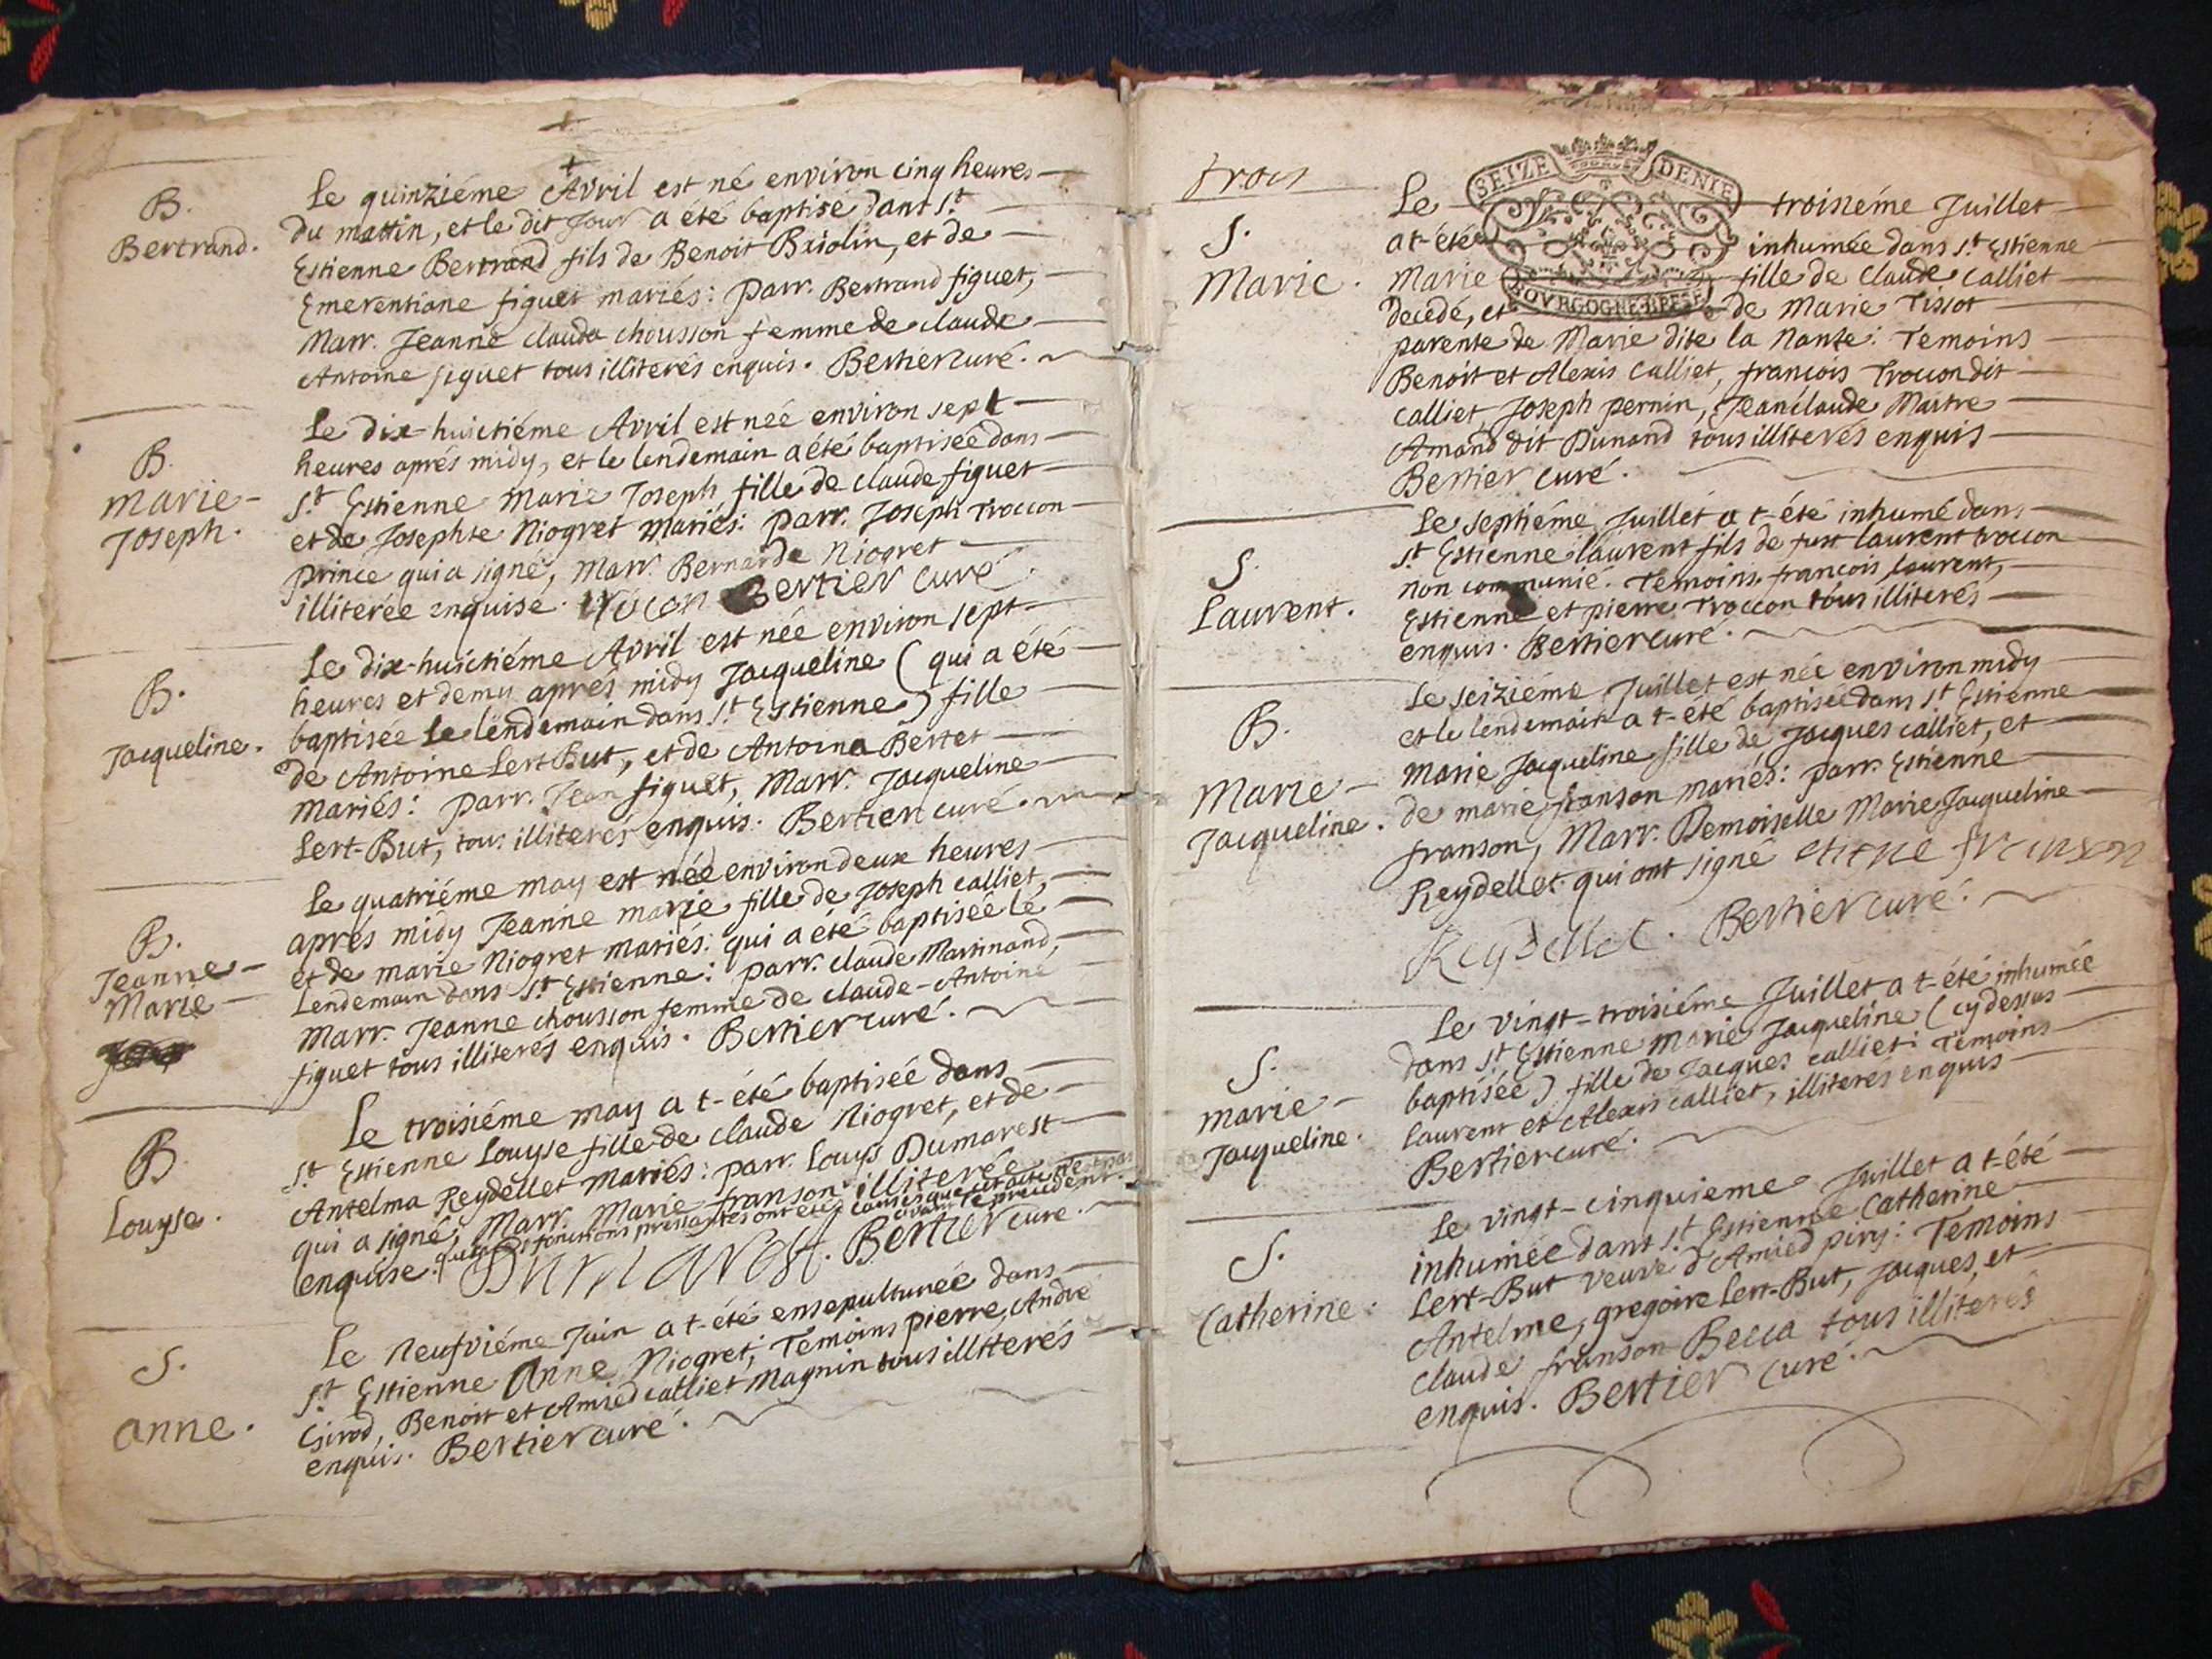 B.
Bertrand.
Le quinziéme Avril est né environ cinq heures
du mattin, et le dit Jour a été baptisé dans St.
Estienne Bertrand fils de Benoit Briolin, et de
Emerentiane figuet mariés: parr. Bertrand figuet,
Marr. Jeanne clauda chousson femme de claude
Antoine figuet tous illiterés enquis. Bertier curé.
B.
Marie-
Joseph.
Le dix-huictiéme Avril est née environ sept
heures aprés midy, et le lendemain a été baptisée dans
St. Estienne Marie Joseph fille de claude figuet
et de Josephte Niogret mariés: parr. Joseph Troccon
prince qui a signé, Marr. Bernarde Niogret
illiterée enquise. Bertier curé.
B.
Jacqueline.
Le dix-huictiéme Avril est née environ sept
heures et demy aprés midy Jacqueline (qui a été
baptisée le lendemain dans St. Estienne) fille
de Antoine Lert-But, et de Antoina Bertet
mariés: parr. Jean figuet, Marr. Jacqueline
Lert-But, tous illiterés enquis. Bertier curé.
B.
Jeanne-
Marie
Le quatriéme may est née environ deux heures
aprés midy Jeanne marie fille de Joseph calliet,
et de marie Niogret mariés: qui a été baptisée le
lendemain dans St. Estienne: parr. claude Martinand,
Marr. Jeanne chousson femme de claude-Antoine
figuet tous illiterés enquis. Bertier curé.
B.
Louyse.
Le troisiéme may a t-été baptisée dans
St. Estienne Louyse fille de claude Niogret, et de
Antelma Reydellet mariés: parr. Louys Dumarest
qui a signé; Marr. Marie franson illiterée
enquise. Dumarest. Bertier curé.
S.
Anne.
Le neufviéme Juin a t-été ensepulturée dans
St. Estienne Anne Niogret; Temoins pierre, André
Girod, Benoit et Amied calliet Magnin tous illiterés
enquis. Bertier curé.
trois
SEIZE DENIE
BOVRGOGNE BRESSE
S.
Marie.
Le troisiéme Juillet
a t-été inhumée dans St. Estienne
Marie fille de claude calliet
decedé, et de Marie Tissot
parente de Marie dite la Nante: Temoins
Benoit et Alexis Calliet, francois Troccon dit
calliet, Joseph pernin, Jeanclaude Maitre
Amand dit Dunand tous illiterés enquis
Bertier curé.
S.
Laurent.
Le septiéme Juillet a t-été inhumé dans
St. Estienne laurent fils de just laurent troccon
non communié. Temoins francois laurent,
Estienne et pierre Troccon tous illiterés
enquis. Bertier curé.
B.
Marie-
Jacqueline.
Le seiziéme Juillet est née environ midy
et le lendemain a t-été baptisée dans St. Estienne
Marie Jacqueline fille de Jacques calliet, et
de marie franson mariés: parr. Estienne
franson, Marr. Demoiselle Marie Jacqueline
Reydellet qui ont signé etiene franson
Reydellet. Bertier curé.
S.
Marie-
Jacqueline.
Le vingt-troisiéme Juillet a t-été inhumée
dans St. Estienne Marie Jacqueline (cy dessus
baptisée) fille de Jacques calliet: Temoins
Laurent et Alexis calliet, illiteres enquis
Bertier curé.
S.
Catherine.
Le vingt-cinquieme Juillet a t-été
inhumée dans St. Estienne Catherine
Lert-But veuve d'Amied piry: Temoins
Antelme, gregoire Lert-But, Jacques, et
claude franson-Becca tous illiterés
enquis. Bertier curé.